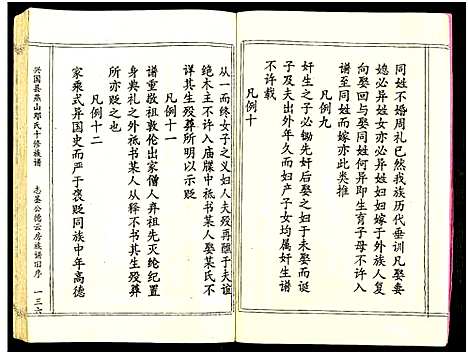 同姓不婚周礼已然我族历代垂训凡娶妾
媳必异姓女亦必异姓妇妇嫁于外族人复
向娶回与娶同姓何异即生育子母不许入
谱至同姓而嫁亦此类推
凡例九
奸生之子必锄先奸后娶之妇未娶而诞
子及夫出外年久而妇产子女均属奸生谱
不许载
凡例十
从一而终女子之义妇人夫殁再醮于夫谊
绝木主不许入庙牒中祗书某人娶某氏不
详其生殁葬所明以示贬
凡例十一
谱重敬祖敦伦出家僧人弃祖先灭纶纪置
身典礼之外祗书某人从释不书其生殁葬
所亦贬之也
凡例十二
家乘式异国史而严于褒贬同族中年高德
兴国县燕山邓氏十修族谱
志圣公德云房族谱旧序
一三六